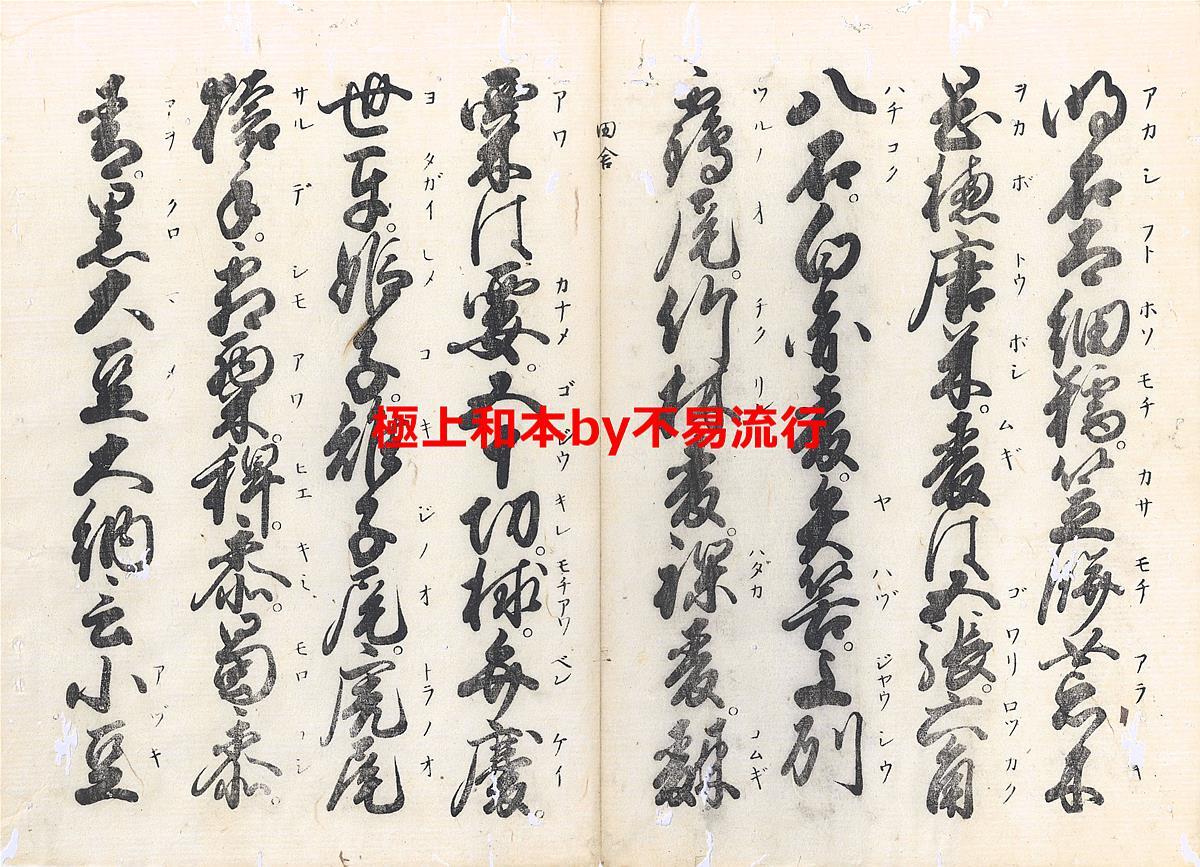 アカシ フト ホソ モチ カサ モチ アラ
明石太細糯。笠餅荒木
ヲカ ボ トウ ボシ ムギ ゴワリ ロツカク
穂唐 。麦は五張。六角
ハチコク ヤ ハヅ ジヤウシウ
八石。白赤麦。矢筈。上州
ツルノ オ チク リン ハダカ コムギ
鶴尾。竹林麦。裸麦。
田舎
アワ カナメ ゴ ジウ キレ モチアワ ベン ケイ
粟は要。五十切。 。弁慶。
ヨ タガイ ヒメ コ キ ジノ オ トラノオ
世互。姫子。雉子尾。虎尾
サル デ シモ アワ ヒエ キミ モロコシ
猿手。霜粟。稗。黍。蜀黍。
アヲ クロ マメ アヅキ
青。黒大豆大納言小豆
極上和本by不易流行